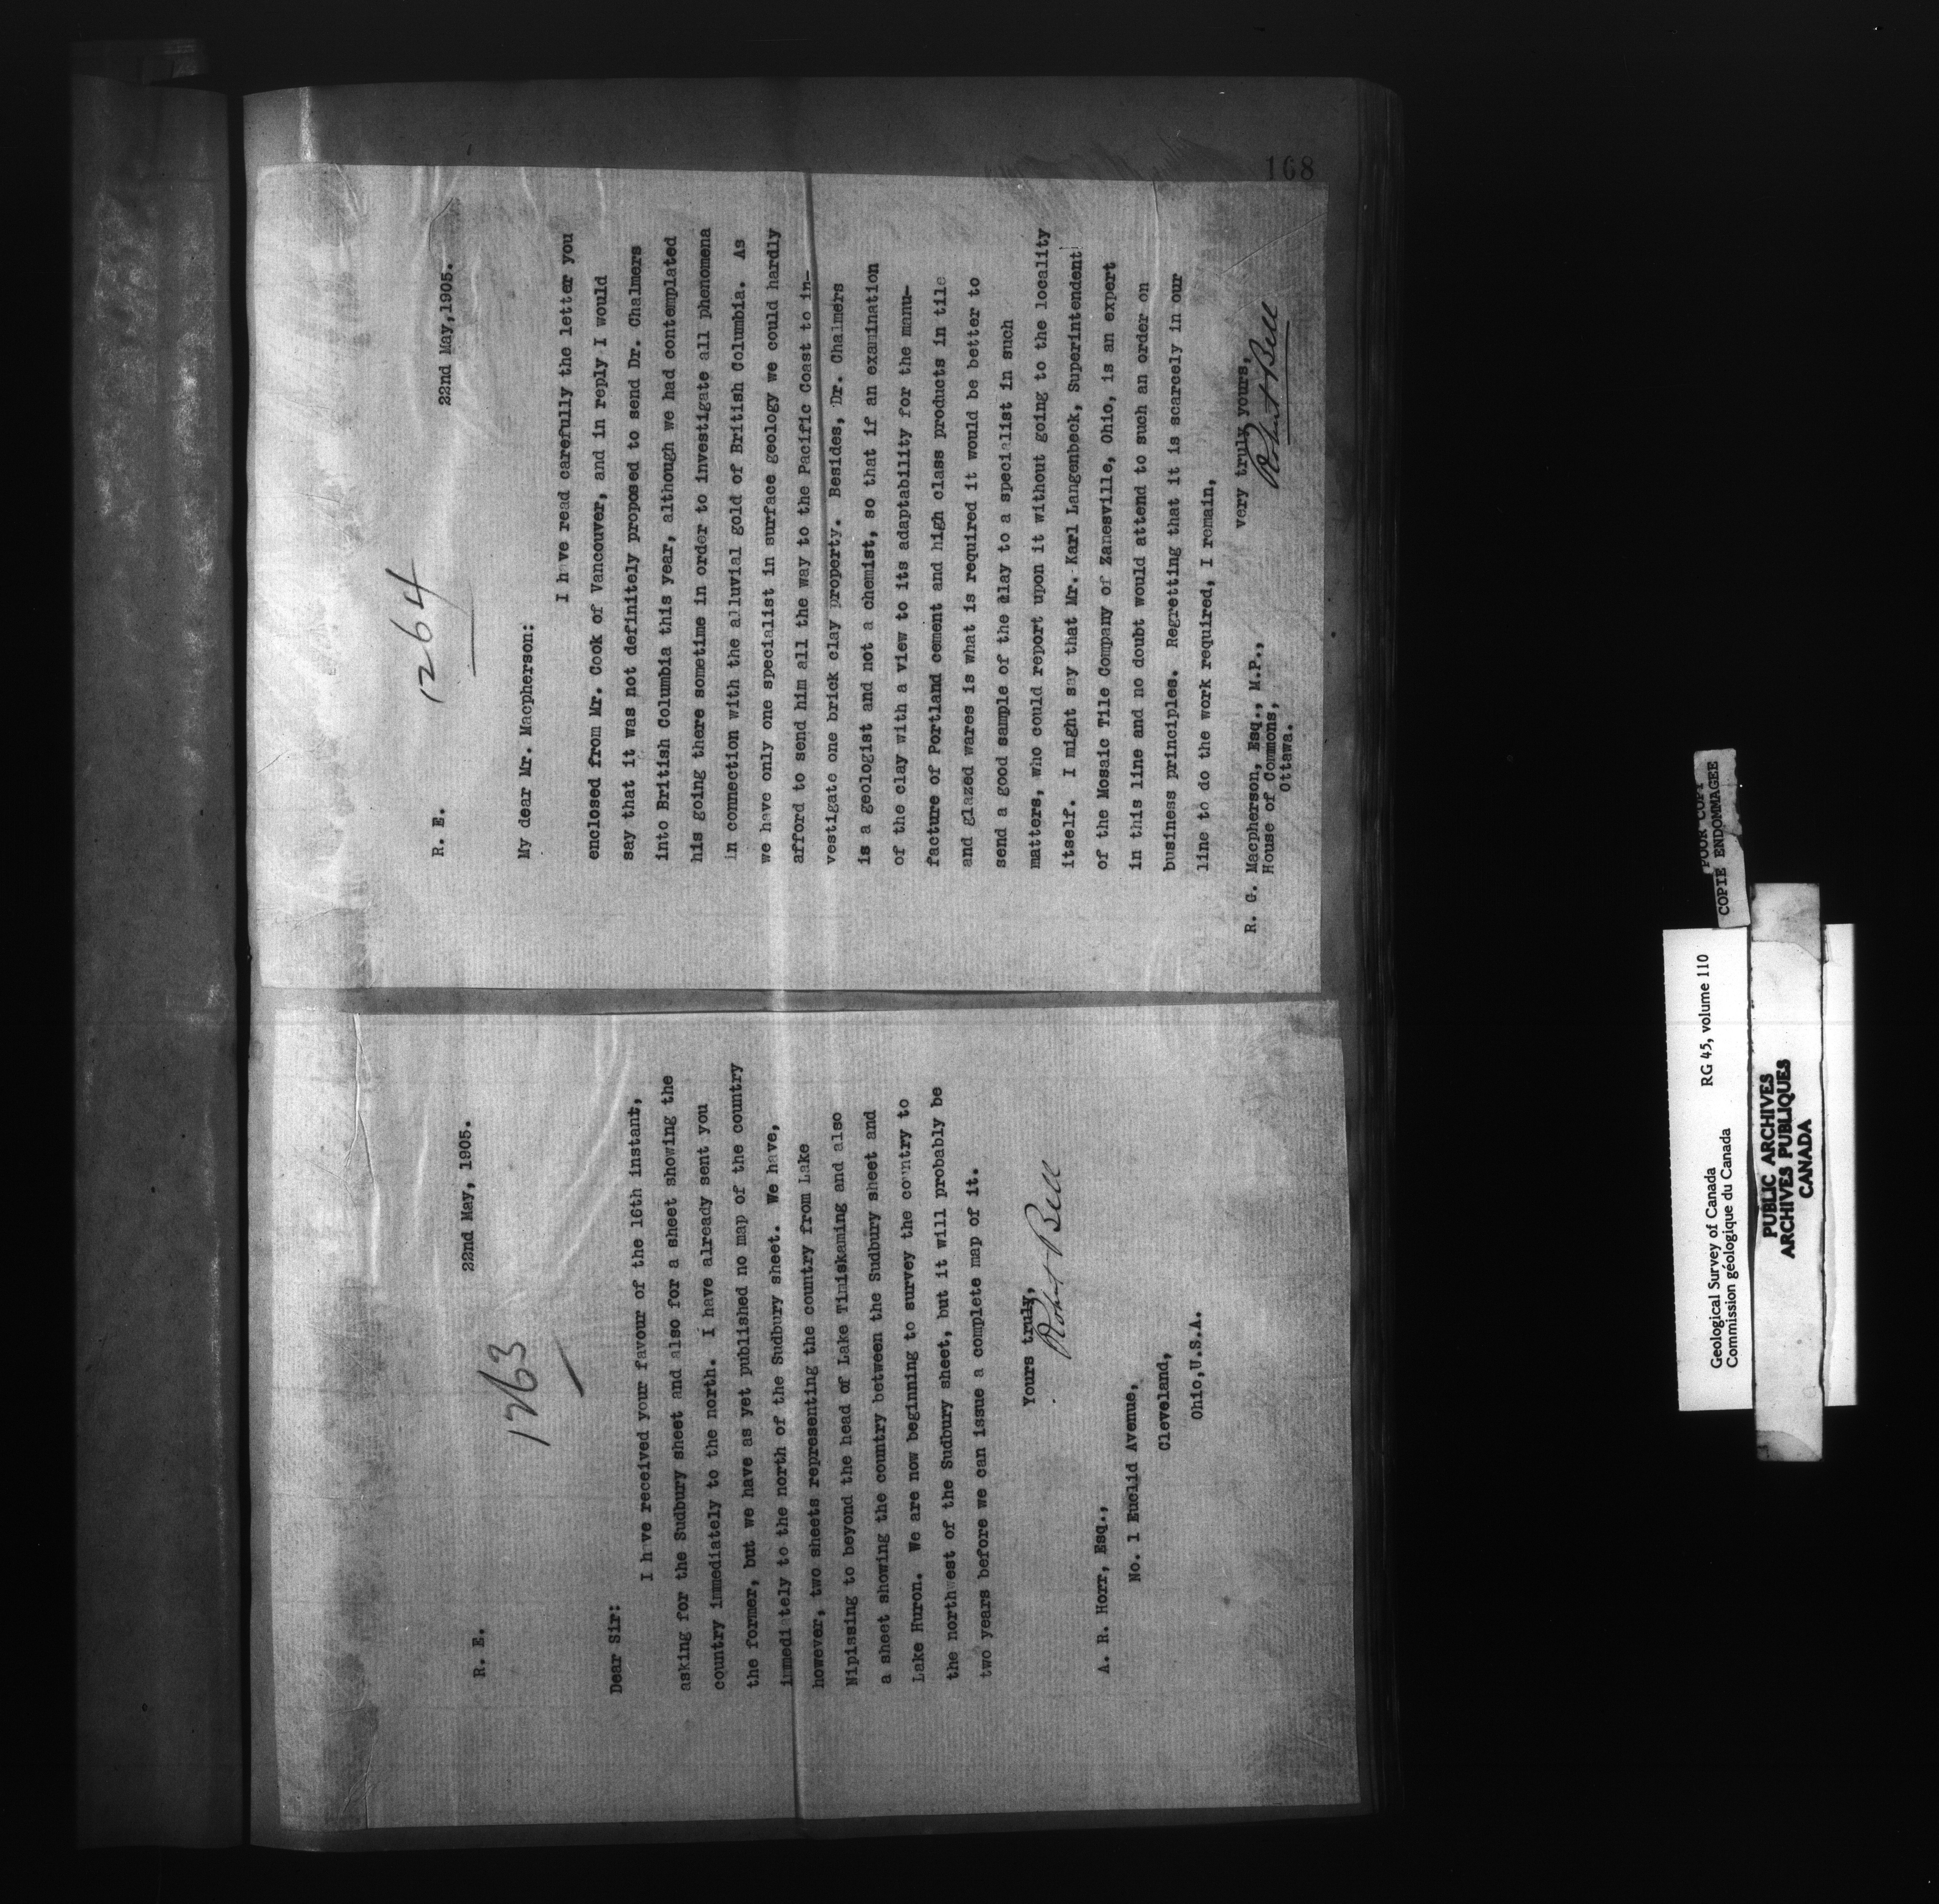 R. E.
22nd May, 1905.
1263
Dear Sir:
I have received your favour of the 16th instant,
asking for the Sudbury sheet and also for a sheet showing the
country immediately to the north. I have already sent you
the former, but we have as yet published no map of the country
immediately to the north of the Sudbury sheet. We have,
however, two sheets representing the country from Lake
Nipissing to beyond the head of Lake Timiskaming and also
a sheet showing the country between the Sudbury sheet and
Lake Huron. We are now beginning to survey the country to
the northwest of the Sudbury sheet, but it will probably be
two years before we can issue a complete map of it.
Yours truly,
Robert Bell
A. R. Horr, Esq.,
No. 1 Euclid Avenue,
Cleveland,
Ohio, U.S.A.
168
R. E.
22nd May, 1905.
1264
My dear Mr. Macpherson:
I have read carefully the letter you
enclosed from Mr. Cook of Vancouver, and in reply I would
say that it was not definitely proposed to send Dr. Chalmers
into British Columbia this year, although we had contemplated
his going there sometime in order to investigate all phenomena
in connection with the alluvial gold of British Columbia. As
we have only one specialist in surface geology we could hardly
afford to send him all the way to the Pacific Coast to in-
vestigate one brick clay property. Besides, Dr. Chalmers
is a geologist and not a chemist, so that if an examination
of the clay with a view to its adaptability for the manu-
facture of Portland cement and high class products in tile
and glazed wares is what is required it would be better to
send a good sample of the clay to a specialist in such
matters, who could report upon it without going to the locality
itself. I might say that Mr. Karl Langenbeck, Superintendent
of the Mosaic Tile Company of Zanesville, Ohio, is an expert
in this line and no doubt would attend to such an order on
business principles. Regretting that it is scarcely in our
line to do the work required, I remain,
very truly yours,
Robert Bell
R. G. Macpherson, Esq., M.P.,
House of Commons,
Ottawa.
POOR COPY
COPIE ENDOMMAGEE
Geological Survey of Canada RG 45, volume 110
Commission géologique du Canada
PUBLIC ARCHIVES
ARCHIVES PUBLIQUES
CANADA